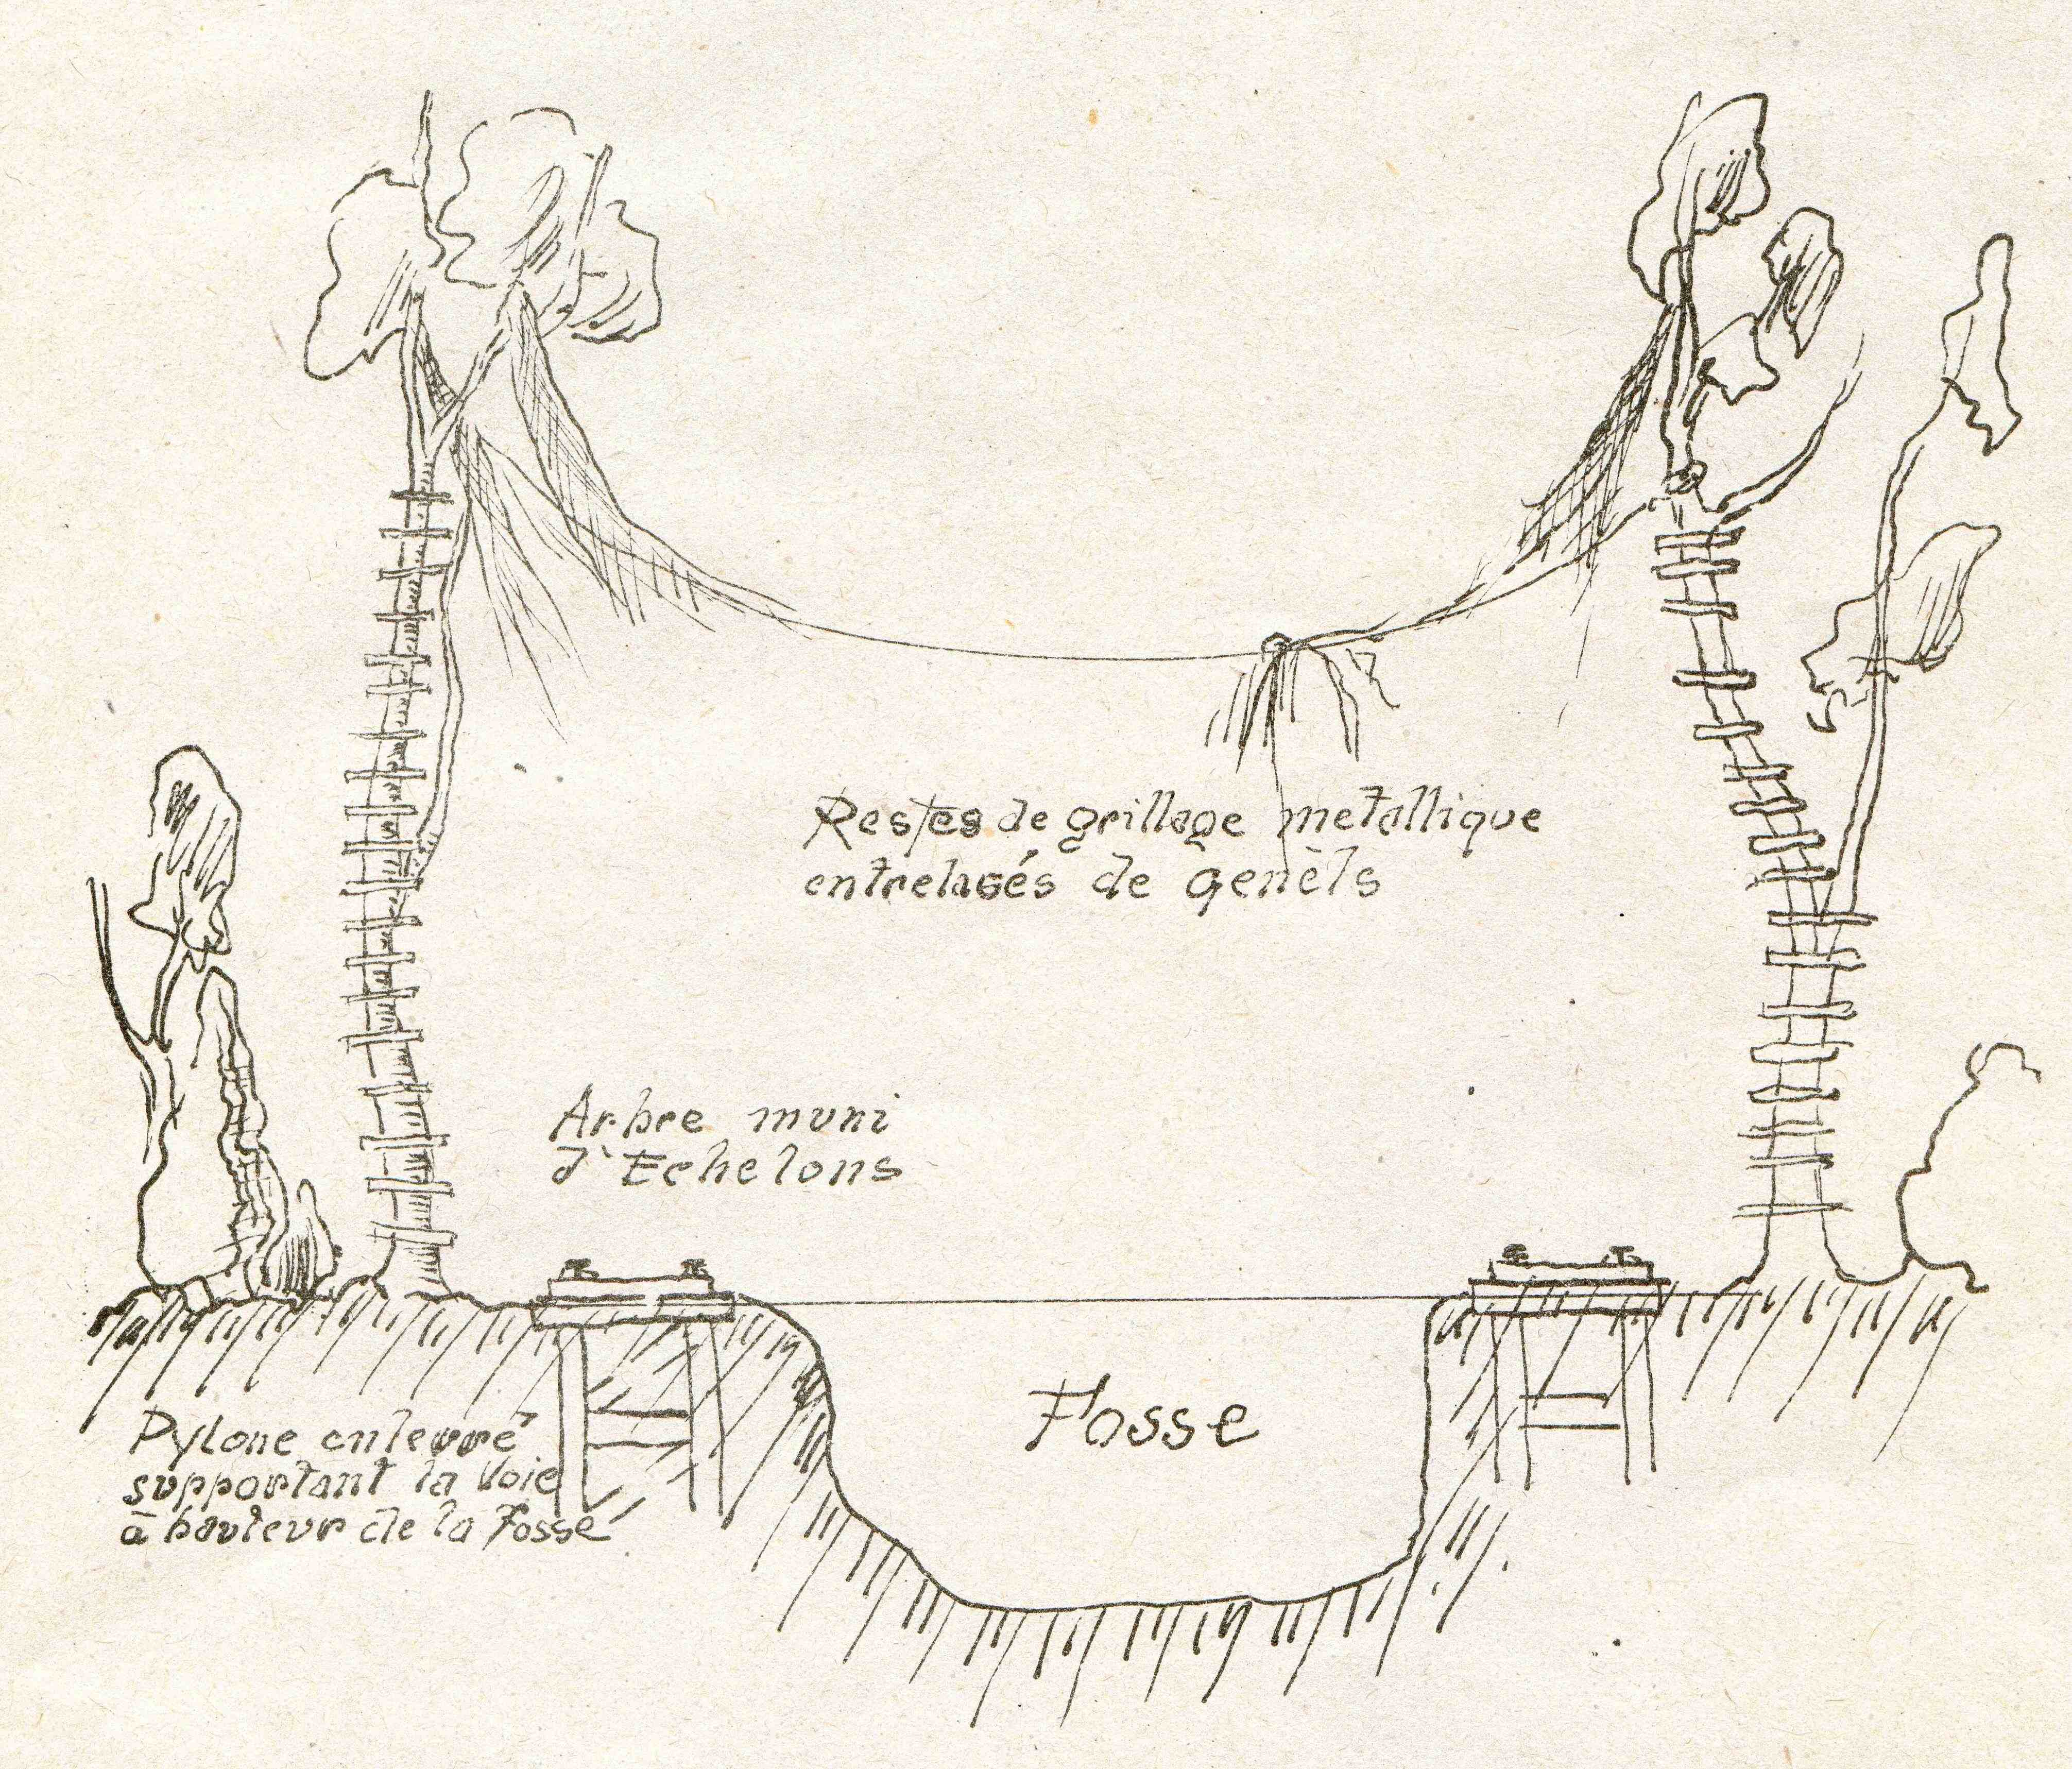 Restes de grillage metallique
entrelasés de genèts
Arbre muni
d'Echelons
Fosse
Pylone enterré
supportant la Voie
à hauteur de la Fosse